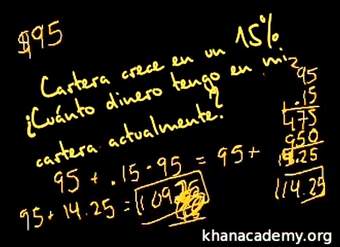 $95
Cartera crece en un 15%
¿Cuánto dinero tengo en mi
cartera actualmente?
95 + .15 · 95 = 95 +
95 + 14.25 = 109.25
95
.15
475
950
14.25
khanacademy.org